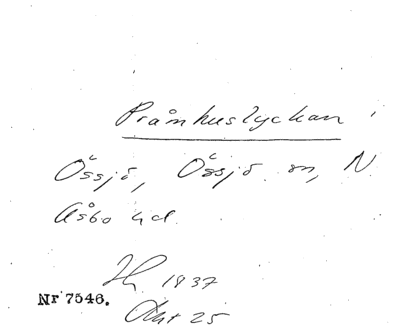 Prånhuslyckan
Össjö, Össjö sn, N.
Åsbo hd.
1937
Nr 7546.
Okt 25